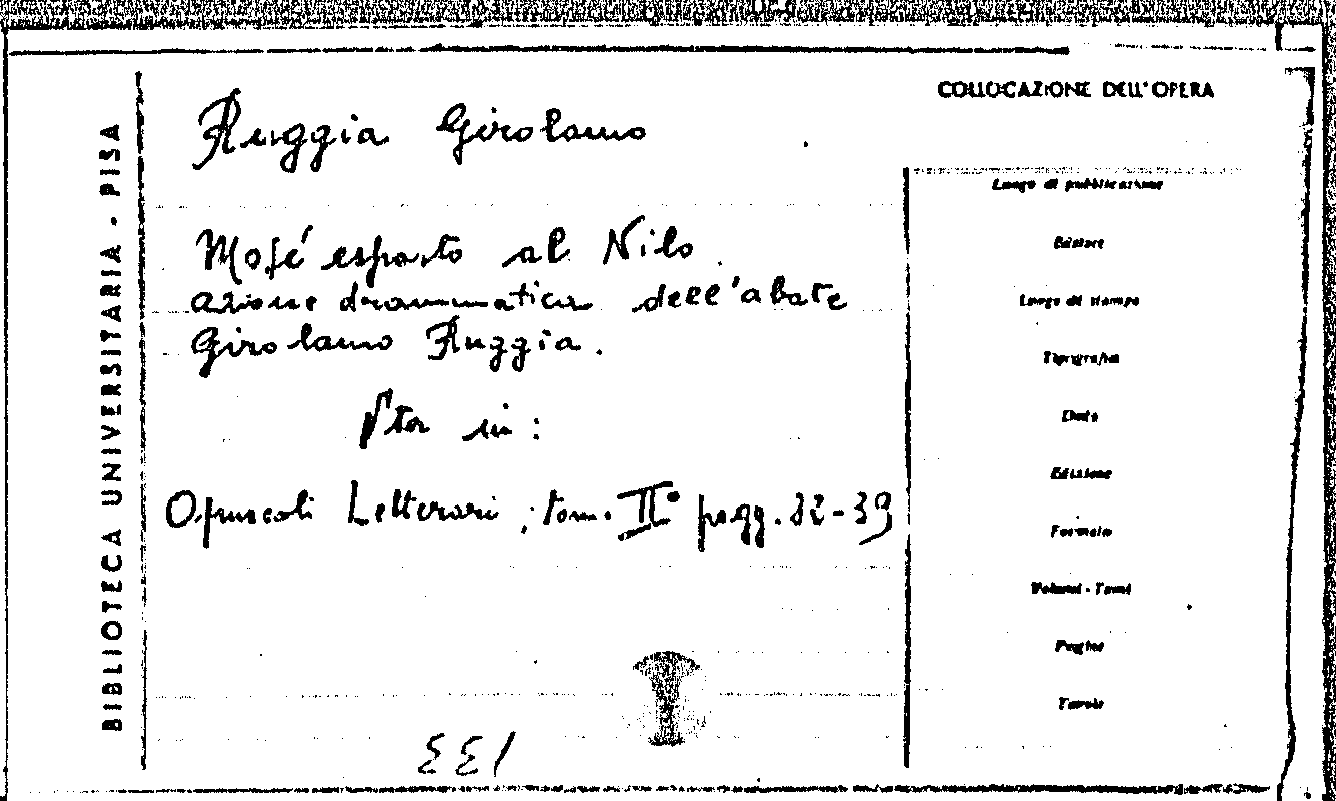 COLLOCAZIONE DELL'OPERA
BIBLIOTECA UNIVERSITARIA - PISA
Ruggia Girolamo
Mosé esposto al Nilo
azione drammatica dell'abate
Girolamo Ruggia.
Sta in:
Opuscoli Letterari, tom. II° pagg. 32-39
133
Luogo di pubblicazione
Editore
Luogo di stampa
Tipografia
Data
Edizione
Formato
Volumi - Tomi
Pagine
Tavole